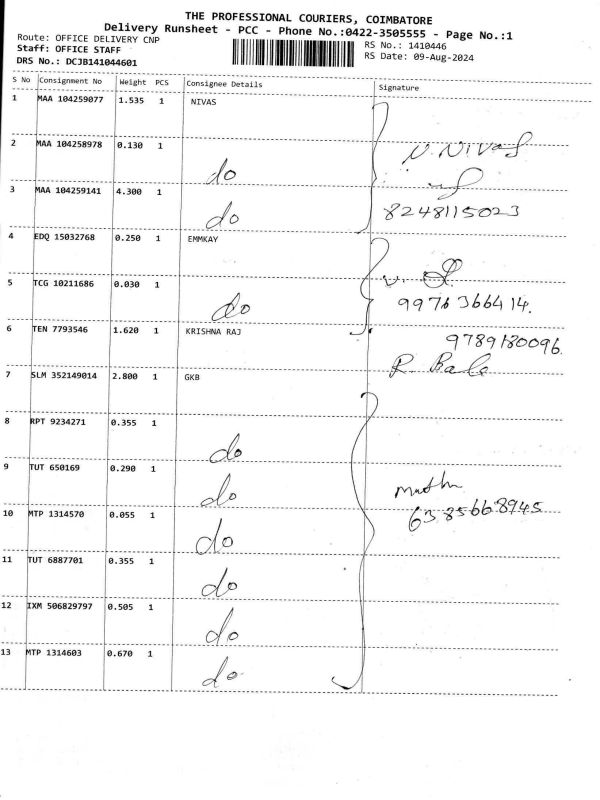 THE PROFESSIONAL COURIERS, COIMBATORE
Delivery Runsheet - PCC - Phone No.:0422-3505555 - Page No.:1
Route: OFFICE DELIVERY CNP
RS No.: 1410446
Staff: OFFICE STAFF
RS Date: 09-Aug-2024
DRS No.: DCJB141044601
S No Consignment No Weight PCS Consignee Details Signature
1 MAA 104259077 1.535 1 NIVAS
2 MAA 104258978 0.130 1 do N. NIVAS
3 MAA 104259141 4.300 1 do 8248115023
4 EDQ 15032768 0.250 1 EMMKAY
5 TCG 10211686 0.030 1 do 9976366414.
6 TEN 7793546 1.620 1 KRISHNA RAJ 9789180096.
R. Bala
7 SLM 352149014 2.800 1 GKB
8 RPT 9234271 0.355 1 do
9 TUT 650169 0.290 1 do
10 MTP 1314570 0.055 1 do 6385668945
11 TUT 6887701 0.355 1 do
12 IXM 506829797 0.505 1 do
13 MTP 1314603 0.670 1 do